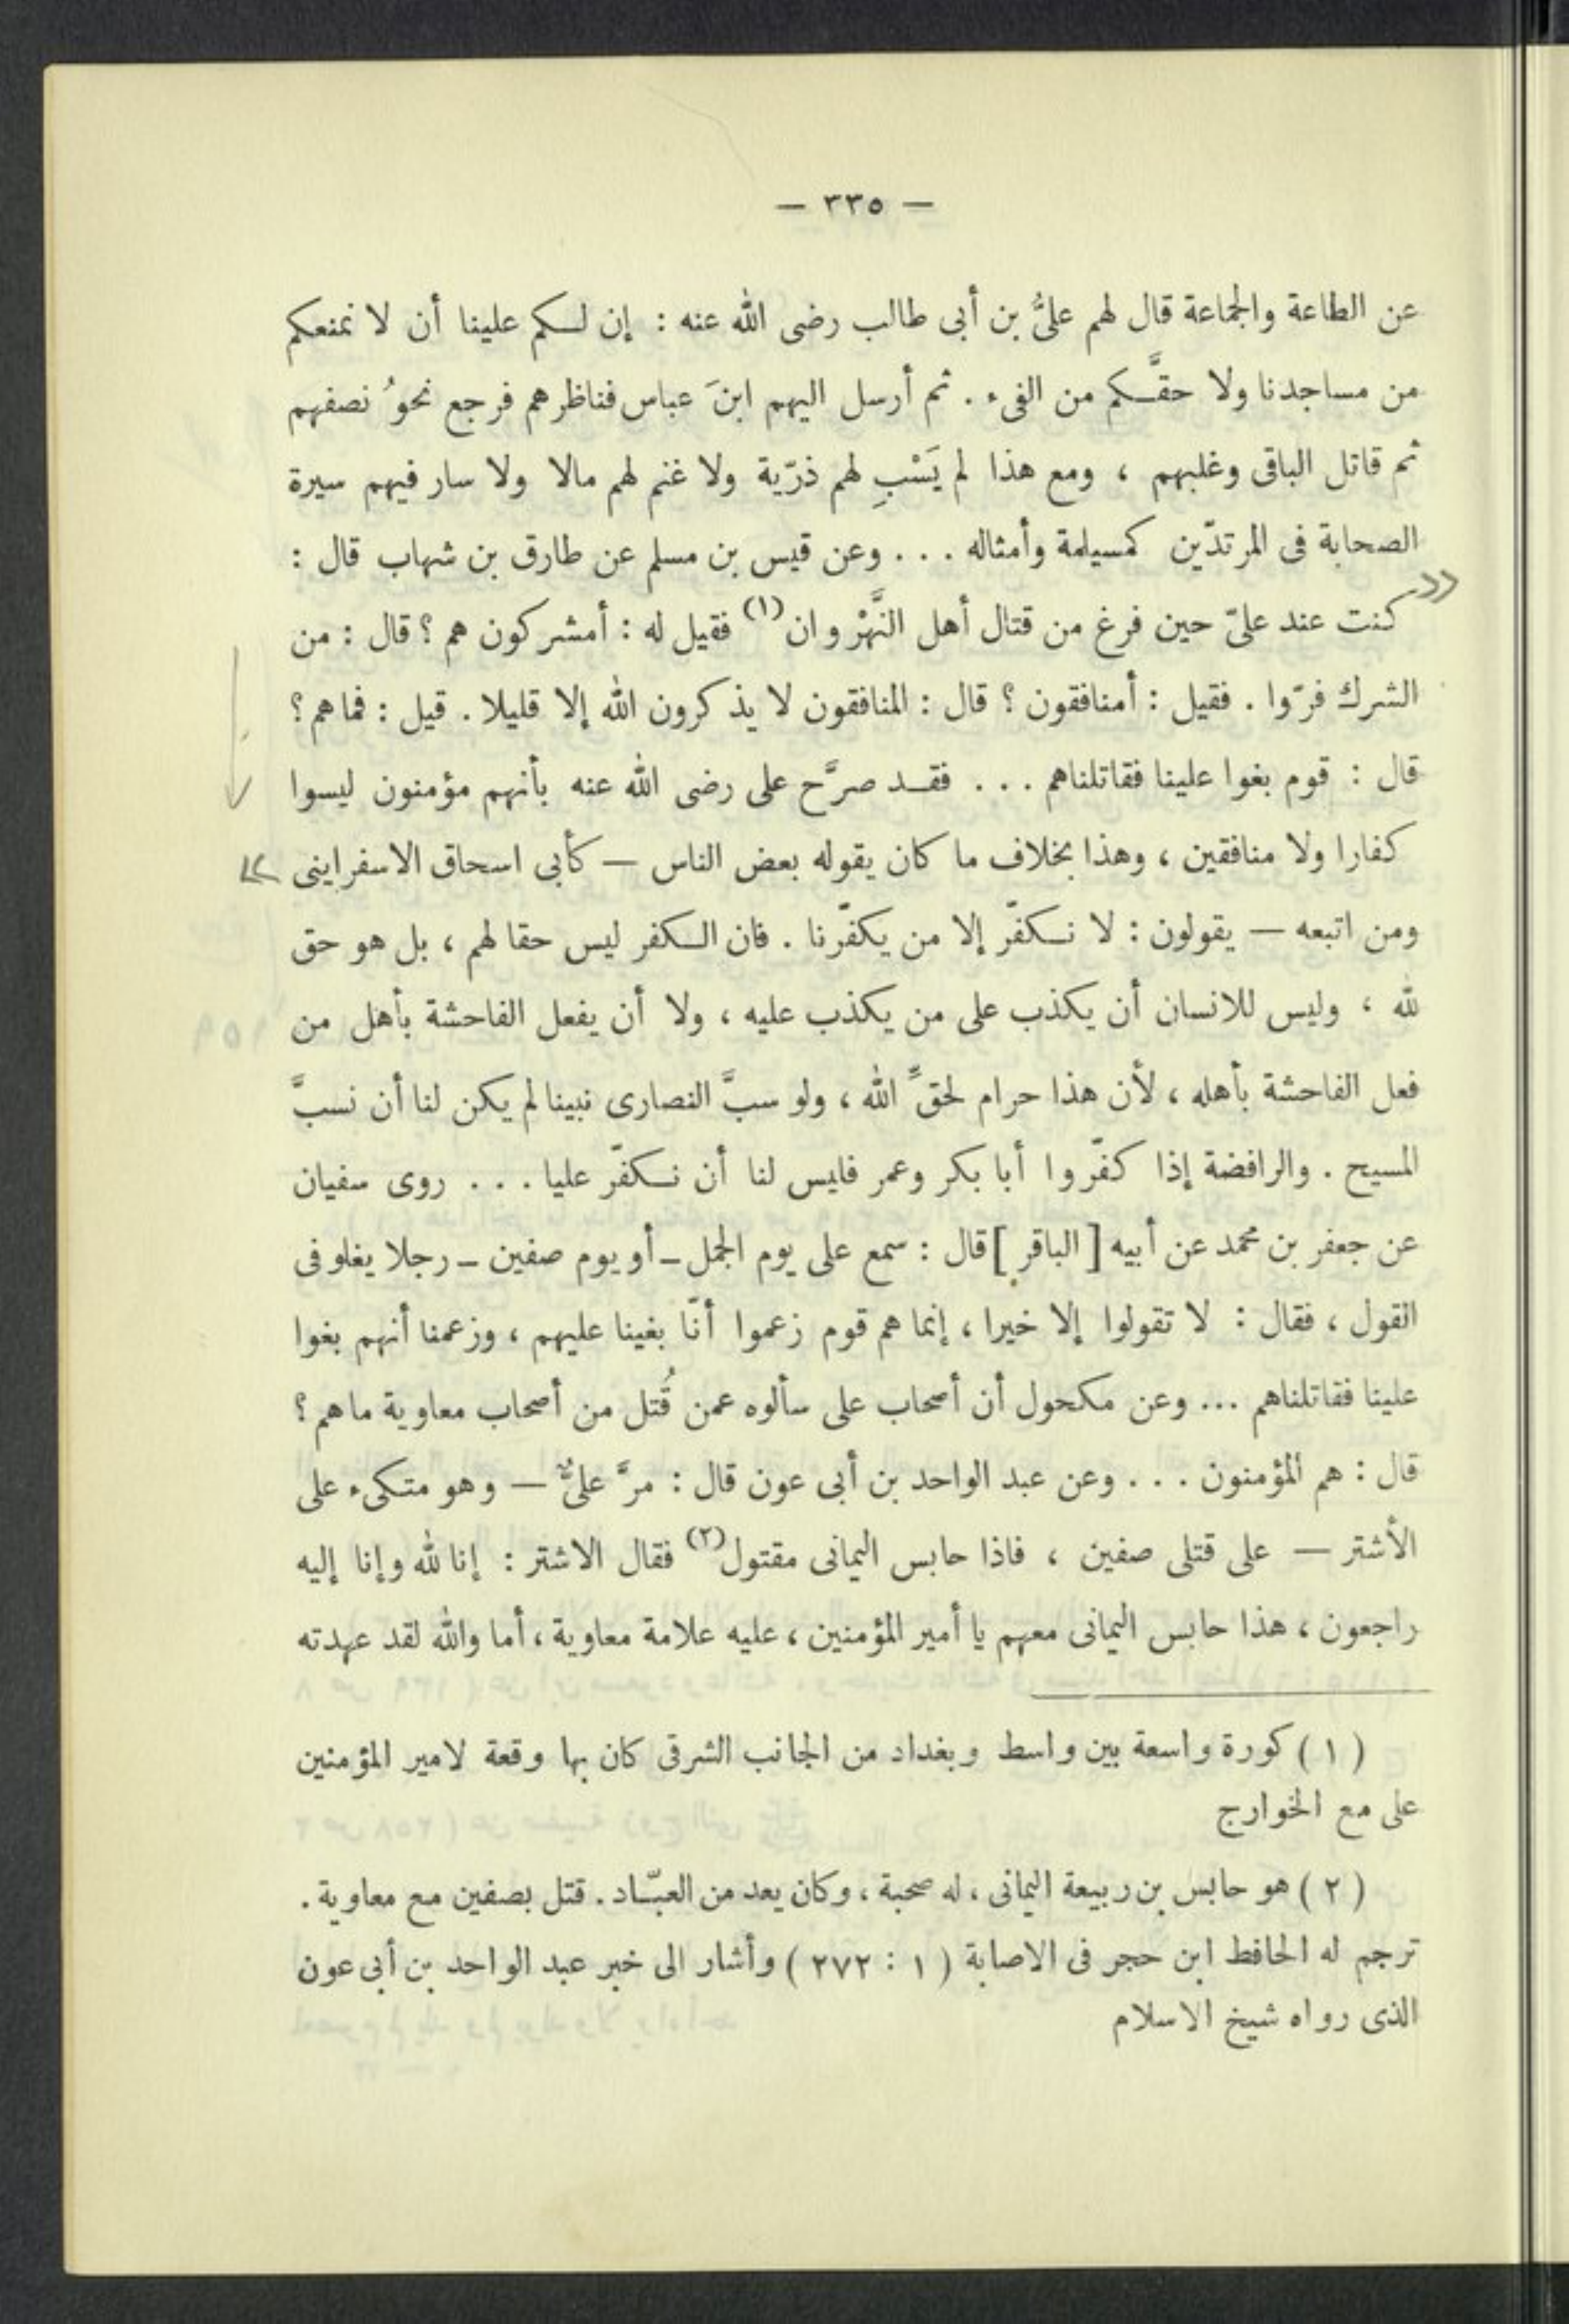 — ٣٣٥ —
عن الطاعة والجماعة قال لهم علىُّ بن أبى طالب رضى الله عنه : إن لكم علينا أن لا نمنعكم
من مساجدنا ولا حقَّكم من الفىء . ثم أرسل اليهم ابنَ عباس فناظرهم فرجع نحوُ نصفهم
ثم قاتل الباقى وغلبهم ، ومع هذا لم يَسْبِ لهم ذرّية ولا غنم لهم مالا ولا سار فيهم سيرة
الصحابة فى المرتدّين كمسيلمة وأمثاله . . . وعن قيس بن مسلم عن طارق بن شهاب قال :
كنت عند علىّ حين فرغ من قتال أهل النَّهْروان(١) فقيل له : أمشركون هم ؟ قال : من
الشرك فرّوا . فقيل : أمنافقون ؟ قال : المنافقون لا يذكرون الله إلا قليلا . قيل : فماهم ؟
قال : قوم بغوا علينا فقاتلناهم . . . فقد صرَّح على رضى الله عنه بأنهم مؤمنون ليسوا
كفارا ولا منافقين ، وهذا بخلاف ما كان يقوله بعض الناس — كأبى اسحاق الاسفراينى
ومن اتبعه — يقولون : لا نكفّر إلا من يكفّرنا . فان الكفر ليس حقا لهم ، بل هو حق
لله ، وليس للانسان أن يكذب على من يكذب عليه ، ولا أن يفعل الفاحشة بأهل من
فعل الفاحشة بأهله ، لأن هذا حرام لحقِّ الله ، ولو سبَّ النصارى نبينا لم يكن لنا أن نسبَّ
المسيح . والرافضة إذا كفّروا أبا بكر وعمر فليس لنا أن نكفّر عليا . . . روى سفيان
عن جعفر بن محمد عن أبيه [ الباقر ] قال : سمع على يوم الجمل ـ أو يوم صفين ـ رجلا يغلو فى
القول ، فقال : لا تقولوا إلا خيرا ، إنما هم قوم زعموا أنّا بغينا عليهم ، وزعمنا أنهم بغوا
علينا فقاتلناهم ... وعن مكحول أن أصحاب على سألوه عمن قُتل من أصحاب معاوية ماهم ؟
قال : هم المؤمنون . . . وعن عبد الواحد بن أبى عون قال : مرَّ علىٌّ — وهو متكىء على
الأشتر — على قتلى صفين ، فاذا حابس اليمانى مقتول(٢) فقال الاشتر : إنا لله وإنا إليه
راجعون ، هذا حابس اليمانى معهم يا أمير المؤمنين ، عليه علامة معاوية ، أما والله لقد عهدته
( ١ ) كورة واسعة بين واسط وبغداد من الجانب الشرقى كان بها وقعة لامير المؤمنين
على مع الخوارج
( ٢ ) هو حابس بن ربيعة اليمانى ، له صحبة ، وكان يعد من العبّاد . قتل بصفين مع معاوية .
ترجم له الحافظ ابن حجر فى الاصابة ( ١ : ٢٧٢ ) وأشار الى خبر عبد الواحد بن أبى عون
الذى رواه شيخ الاسلام